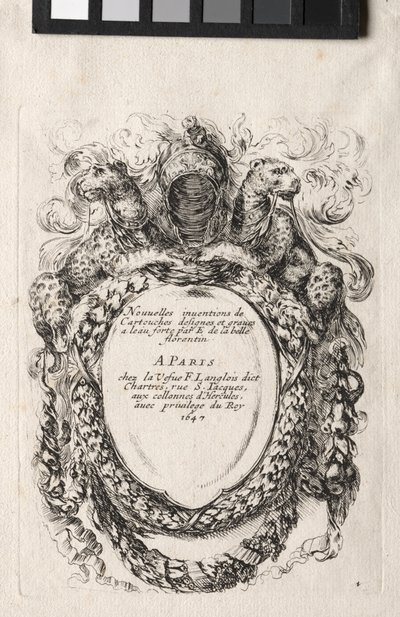 Nouuelles inuentions de
Cartouches designes et graues
a leau forte par E de la belle
florentin
A PARIS
chez la Vefue F. Langlois dict
Chartres, rue S. Iacques,
aux collonnes d'Hercules,
auec priuilege du Roy
1647
1